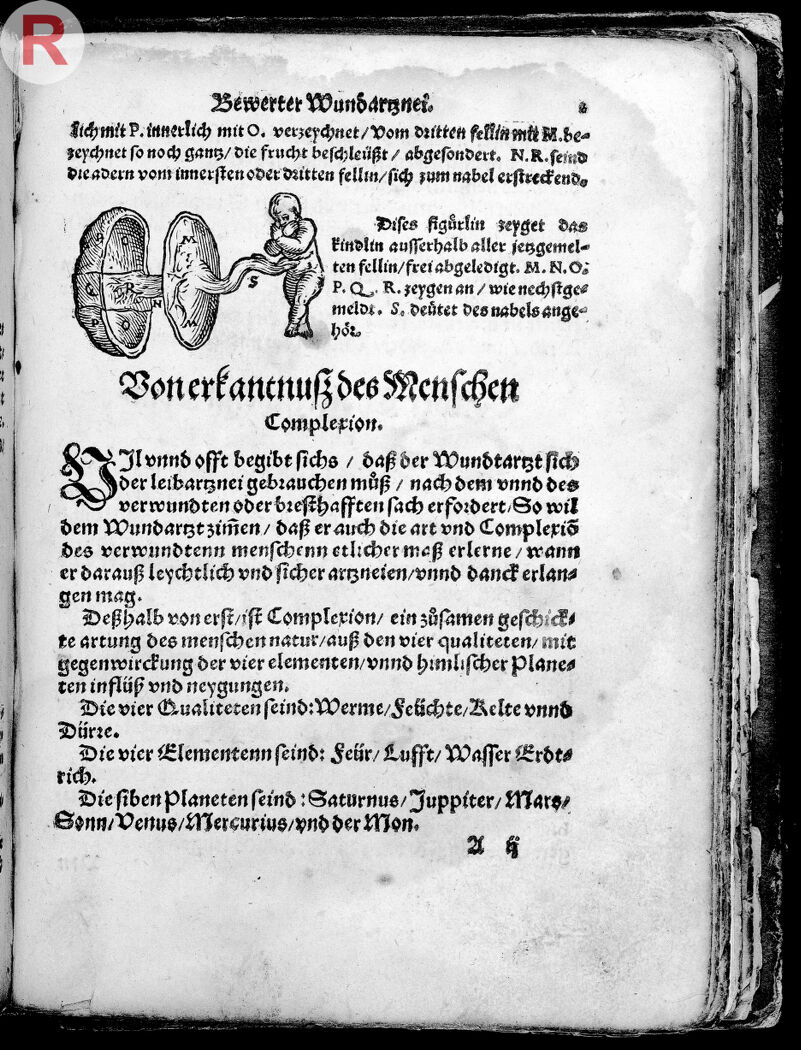 R
Bewerter Wundartznei.
lich mit P. innerlich mit O. verzeychnet/Vom dritten fellin mit M. be-
zeychnet so noch gantz/die frucht beschleüßt/ abgesondert. N.R. seind
die adern vom innersten oder dritten fellin/sich zum nabel erstreckend.
Dises figürlin zeyget das
kindlin ausserhalb aller jetzgemel-
ten fellin/frei abgeledigt. M. N. O.
P. Q. R. zeygen an/ wie nechstge-
meldt. S. deütet des nabels ange-
hör.
S O M
Q R N S
P O M
Von erkantnuß des Menschen
Complexion.
VIl vnnd offt begibt sichs / daß der Wundtartzt sich
der leibartznei gebrauchen můß / nach dem vnnd des
verwundten oder bresthafften sach erfordert/So wil
dem Wundartzt zim̃en/ daß er auch die art vnd Complexiõ
des verwundtenn menschenn etlicher maß erlerne/wann
er darauß leychtlich vnd sicher artzneien/vnnd danck erlan-
gen mag.
Deßhalb von erst/ist Complexion/ ein zůsamen geschick-
te artung des menschen natur/auß den vier qualiteten/mit
gegenwirckung der vier elementen/vnnd himlischer Plane-
ten inflüß vnd neygungen.
Die vier Qualiteten seind:Werme/Feüchte/Kelte vnnd
Dürre.
Die vier Elementenn seind: Feür/Lufft/Wasser Erdt-
rich.
Die siben Planeten seind:Saturnus/Juppiter/Mars/
Sonn/Venus/Mercurius/vnd der Mon.
A ij